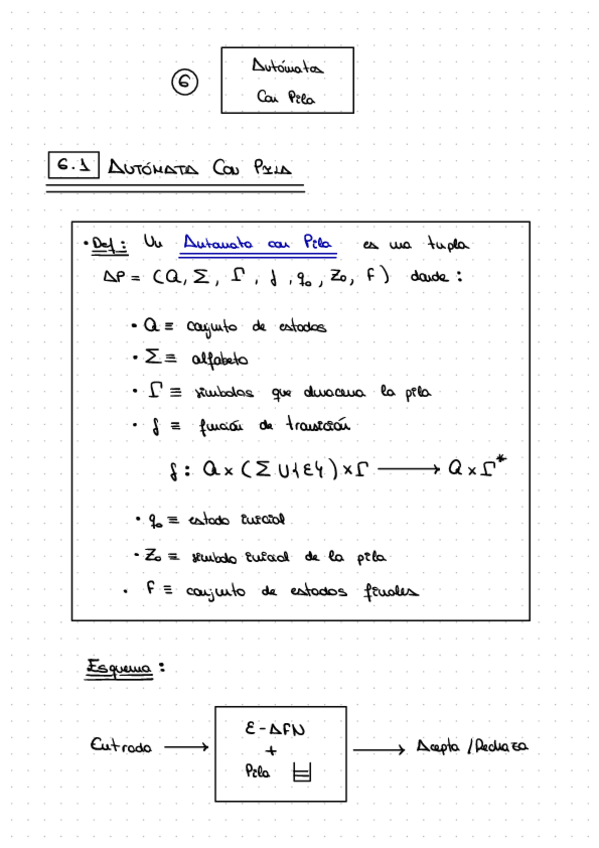 6
Autómatas
Con Pila
6.1 AUTÓMATA CON PILA
• Def: Un Automata con Pila es una tupla
AP = (Q, Σ, Γ, f, q₀, Z₀, F) donde:
• Q ≡ conjunto de estados
• Σ ≡ alfabeto
• Γ ≡ símbolos que almacena la pila
• f ≡ función de transición
f: Q × (Σ ∪ {ε}) × Γ → Q × Γ*
• q₀ ≡ estado inicial
• Z₀ ≡ simbolo inicial de la pila
• F ≡ conjunto de estados finales
Esquema:
ε-AFN
+
Entrada → Pila → Acepta / Rechaza